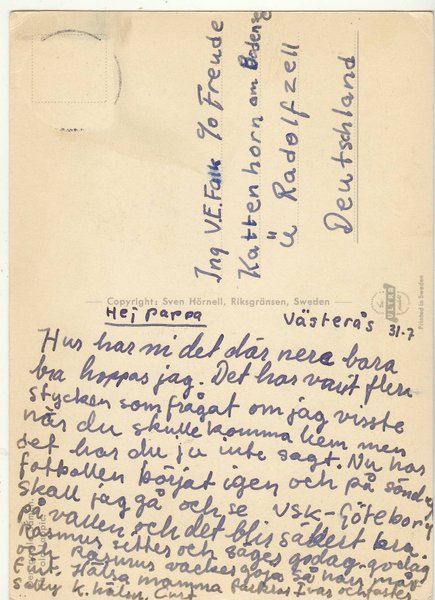 Ing V.E. Falk c/o Freude
Kattenhorn am Bodensee
Ü Radolfzell
Deutschland
Copyright: Sven Hörnell, Riksgränsen, Sweden
ULTRA
Printed in Sweden
Hej pappa Västerås 31-7
Hur har ni det där nere bara
bra hoppas jag. Det har varit flera
stycken som frågat om jag visste
när du skulle komma hem men
det har du ju inte sagt. Nu har
fotbollen börjat igen och på söndag
skall jag gå och se VSK-Göteborg
på vallen och det blir säkert bra.
Rasmus sitter och säger godag-godag
och Rasmus vackergoja så han mår
fint. Hälsa mamma farbror Ivar och faster
Sally K. hälsn. Curt